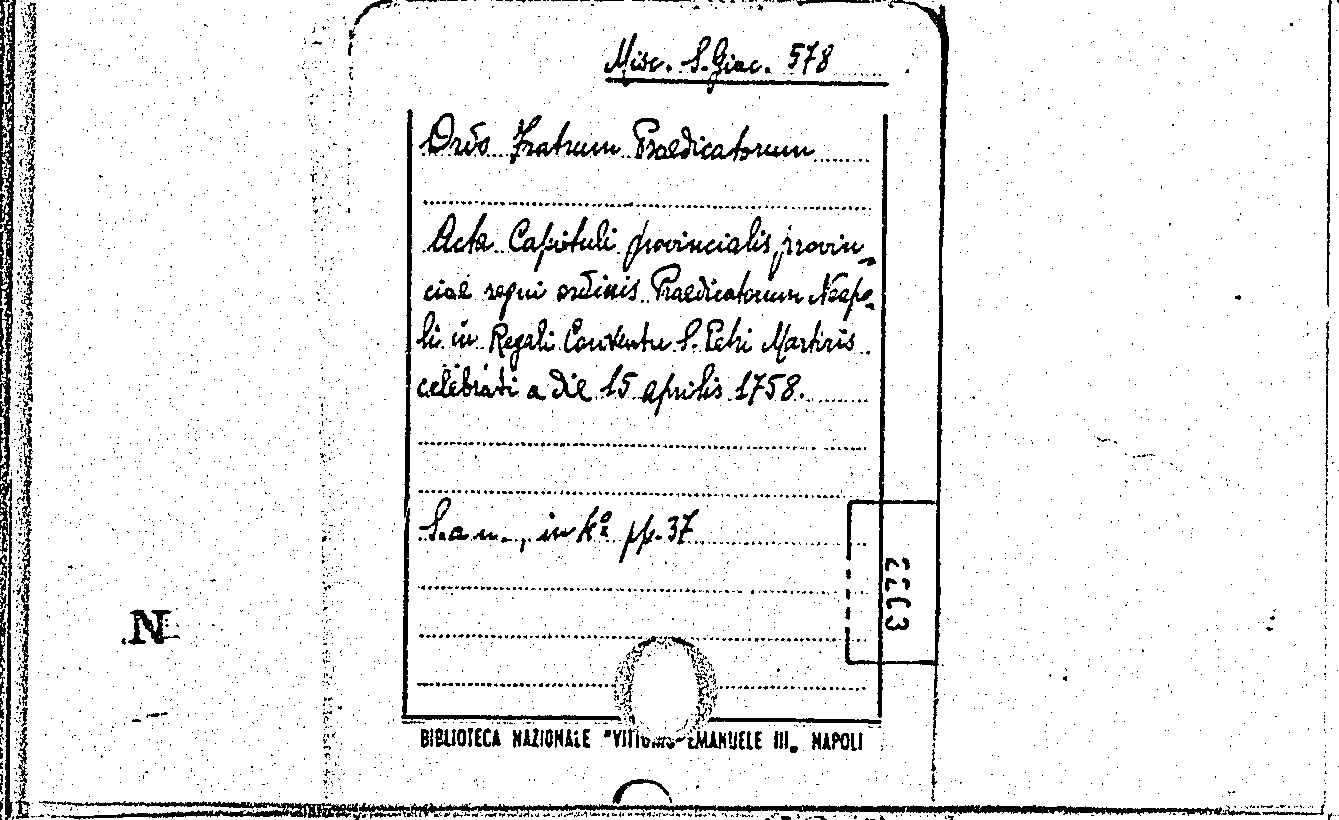 Misc. S. Giac. 578
Ordo Fratrum Praedicatorum
Acta Capituli provincialis provin„
ciae regni ordinis Praedicatorum Neapo„
li in Regali Conventu S. Petri Martiris
celebrati a die 15 aprilis 1758.
S. a n., in 4º pp. 37
N
BIBLIOTECA NAZIONALE "VITTORIO EMANUELE III„ NAPOLI